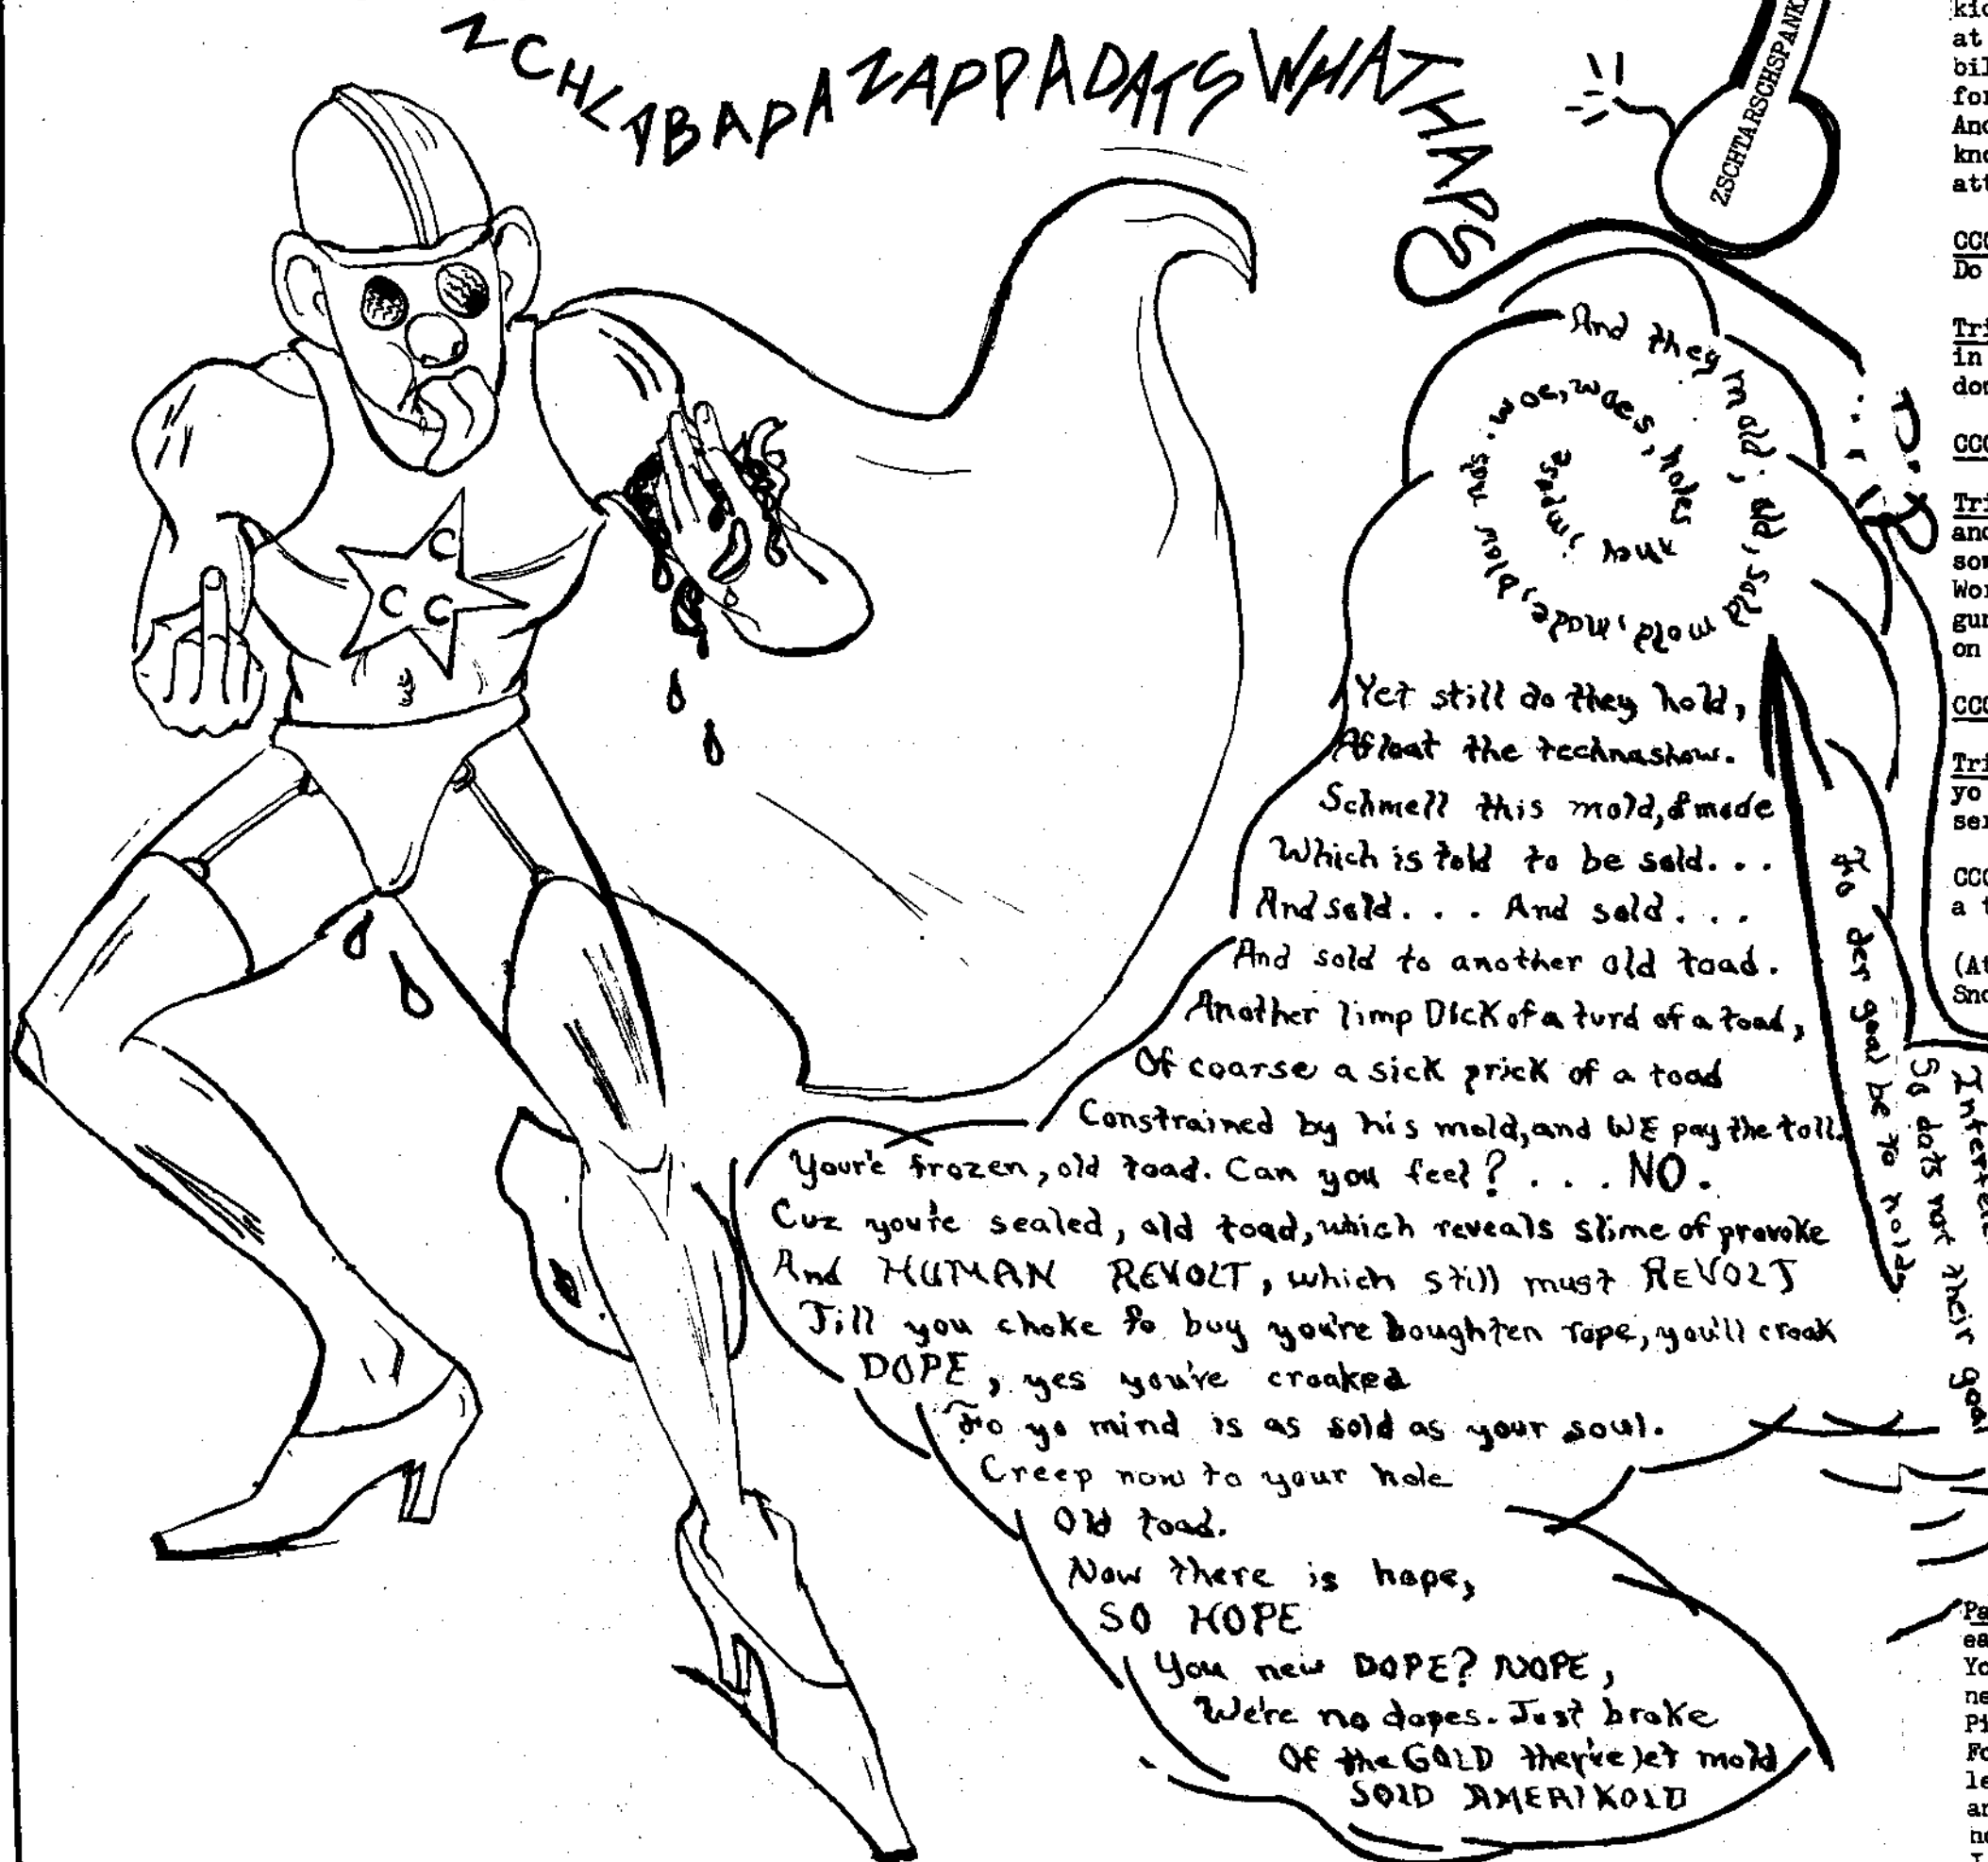 ZCHLABAPAZAPPADATSWHATHAPS
ZSCHTARSCHSPANK
C
C C
And they mold; old, sold mold, made, mold
was. woe, woes, holes
impose
Yet still do they hold,
Afloat the technashow.
Schmell this mold, & made
Which is told to be sold...
And sold... And sold...
And sold to another old toad.
Another limp DICK of a turd of a toad,
Of coarse a sick prick of a toad
Constrained by his mold, and WE pay the toll.
Your'e frozen, old toad. Can you feel?... NO.
Cuz you're sealed, old toad, which reveals slime of provoke
And HUMAN REVOLT, which still must REVOLT
Till you choke to buy you're boughten rope, you'll croak
DOPE, yes you've croaked
Fo yo mind is as sold as your soul.
Creep now to your hole
Old toad.
Now there is hope,
SO HOPE
You new DOPE? NOPE,
We're no dopes. Just broke
Of the GOLD they've let mold
SOLD AMERIKOLD
Fo der goal be to hold
So dats not their goal
kic
at
bil
for
And
kno
att
CCC
Do
Tri
in
dow
CCC
Tri
and
som
Wor
gun
on
CCC
Tri
yo
ser
CCC
a t
(At
Sno
Pa
ea
Yo
ne
Pi
Fo
le
an